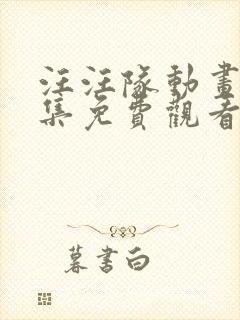 汪汪隊動畫
集免費觀看
暮書白